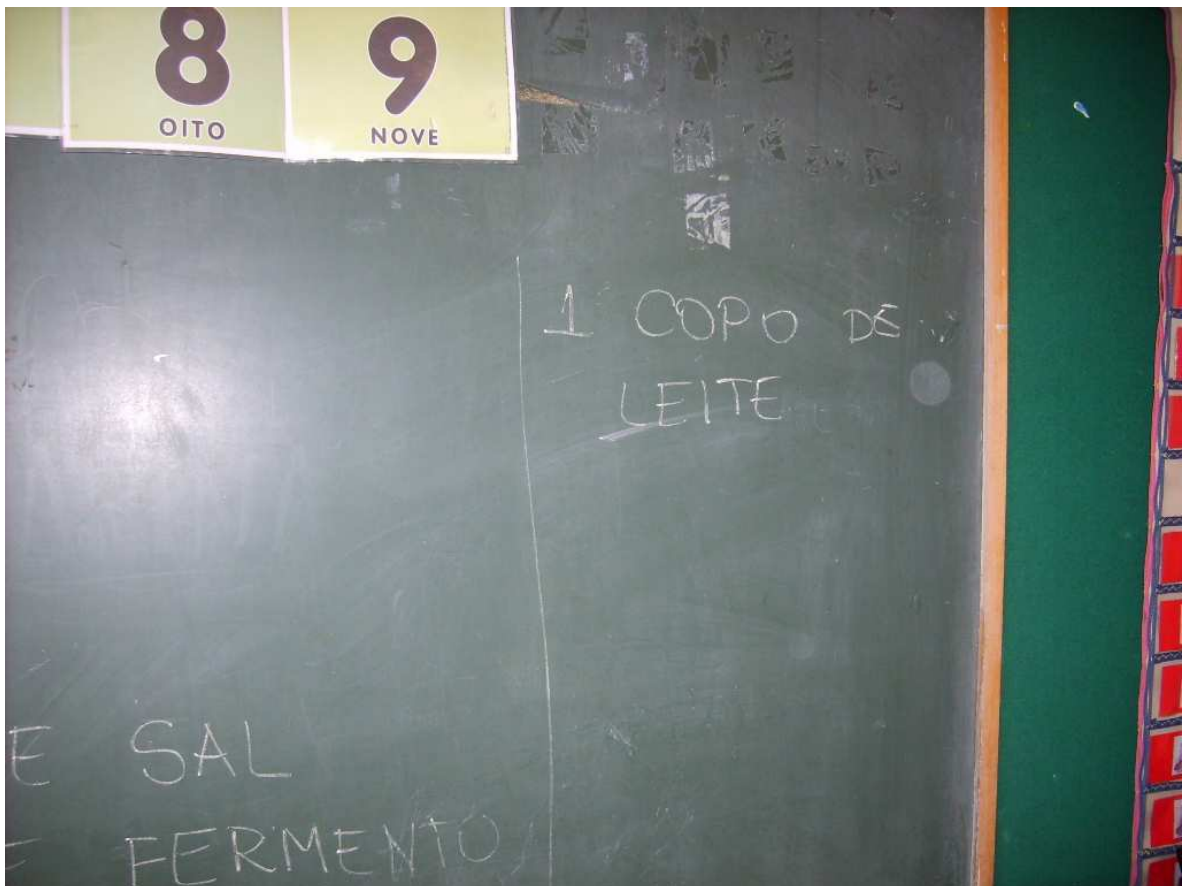 8 9
OITO NOVE
1 COPO DE
LEITE
E SAL
E FERMENTO